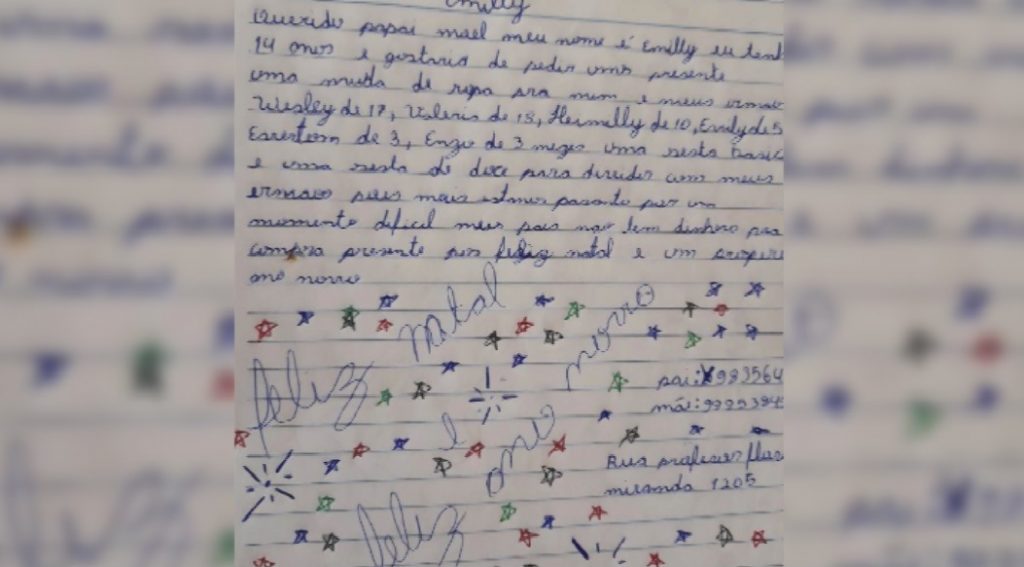 Emilly
Querido papai mael meu nome é Emilly eu tenh
14 anos e gostaria de pedir ums presente
uma muda de ropa pra mim e meus irmao
Wesley de 17, Valeria de 13, Hemilly de 10, Emily de 5
de 3, Enzo de 3 mezes uma sesta basic
e uma sesta de doce para dividir com meus
ermaos pois mais estmos pasanto por um
momento dificil meus pais nao tem dinhero pra
compra presente feliz natal e um prosperu
ano novro
feliz natal
e ano novro
pai: 993564
mãe: 9999394
Rua profesor flav
miranda 1205
feliz